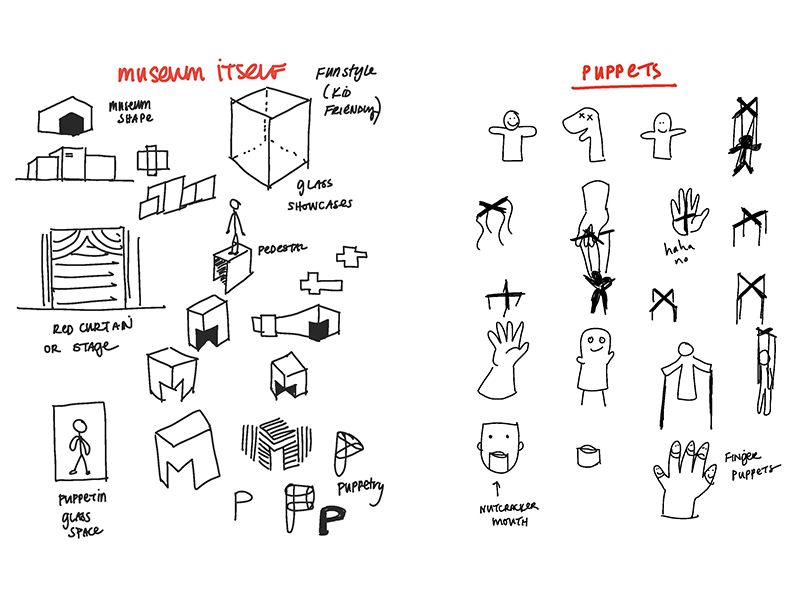 museum itself
Fun style
(Kid
Friendly)
museum
shape
glass
showcases
pedestal
Red curtain
or stage
puppet in
glass
space
puppetry
P
P
PUPPETS
haha
no
Nutcracker
mouth
Finger
puppets